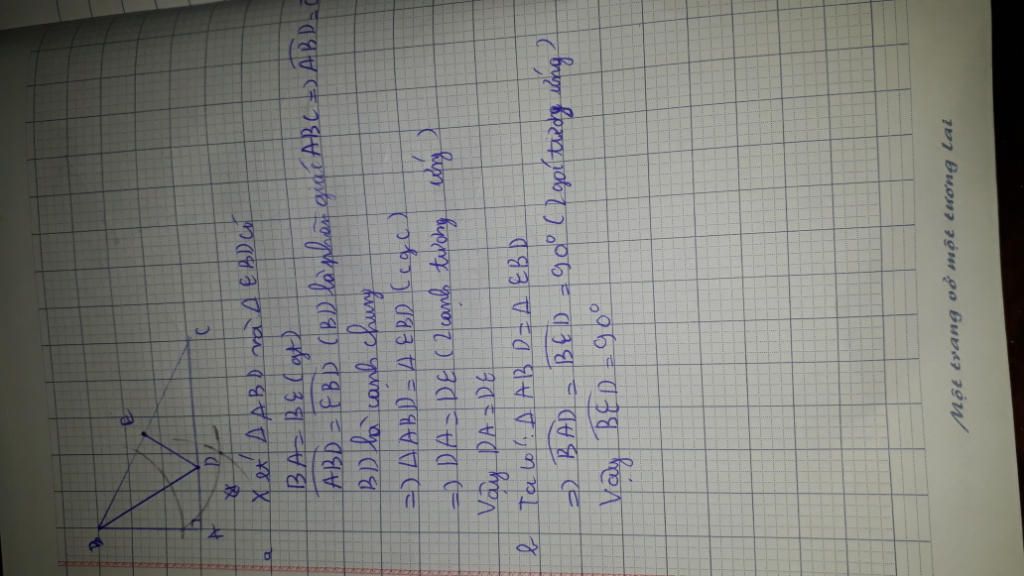 B
E
C
D
A
a
Xét ΔABD và ΔEBD có
BA = BE (gt)
ABD = EBD (BD là phân giác ABC => ABD =
BD là cạnh chung
=> ΔABD = ΔEBD (cgc)
=> DA = DE (2 cạnh tương ứng)
Vậy DA = DE
b Ta có: ΔABD = ΔEBD
=> BAD = BED = 90° (2 góc tương ứng)
Vậy BED = 90°
Một trang vở một tương lai